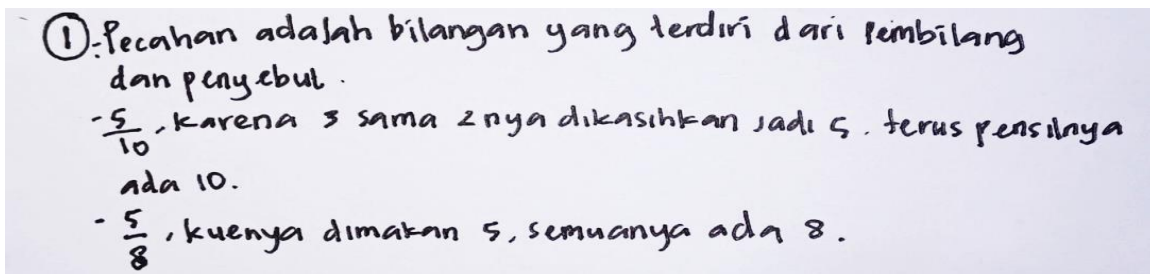 ①-Pecahan adalah bilangan yang terdiri dari Pembilang
dan penyebut.
- 5/10, karena 3 sama 2 nya dikasihkan jadi 5. terus pensilnya
ada 10.
- 5/8, kuenya dimakan 5, semuanya ada 8.